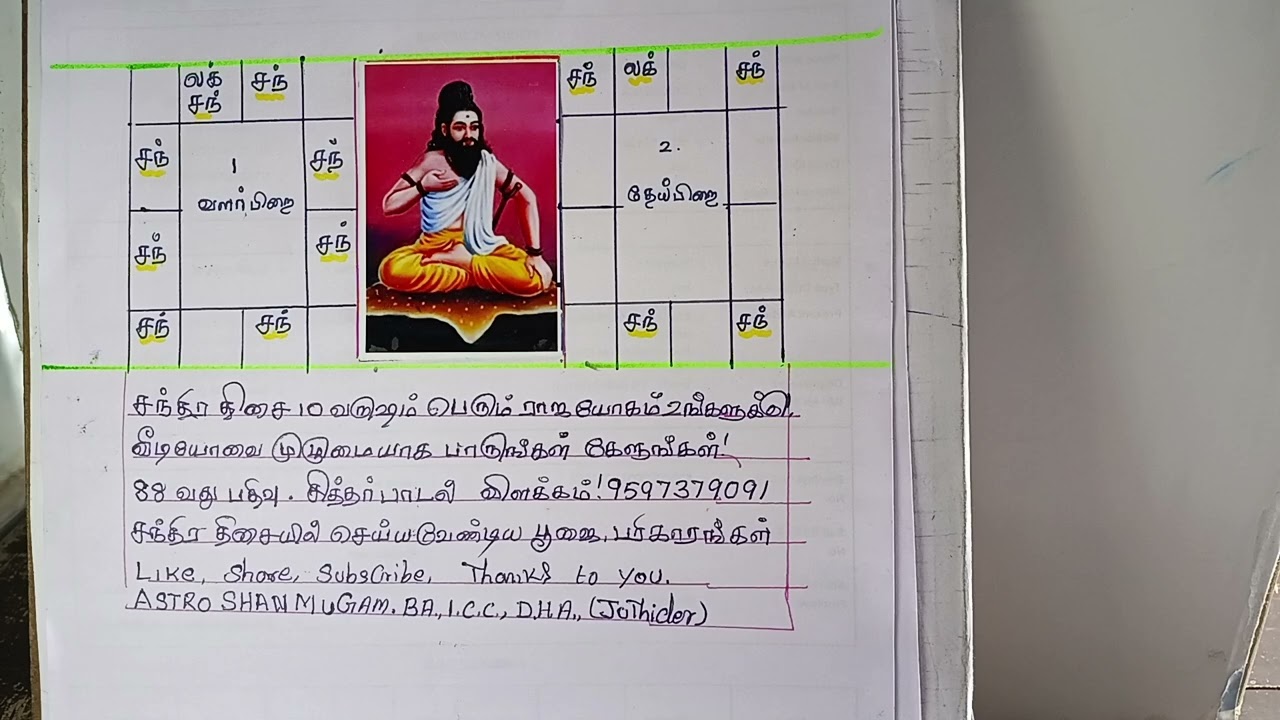 லக் சந் சந் சந் லக் சந்
சந் 1 சந் 2.
வளர்பிறை தேய்பிறை
சந் சந்
சந் சந் சந் சந்
சந்திர திசை 10 வருஷம் பெரும் ராஜ யோகம் உங்களுக்கு
வீடியோவை முழுமையாக பாருங்கள் கேளுங்கள்!
88 வது பதிவு. சித்தர் பாடல் விளக்கம்! 9597379091
சந்திர திசையில் செய்யவேண்டிய பூஜை, பரிகாரங்கள்
Like, Share, Subscribe, Thanks to you.
ASTRO SHANMUGAM. BA., I.C.C., D.H.A., (Jothider)